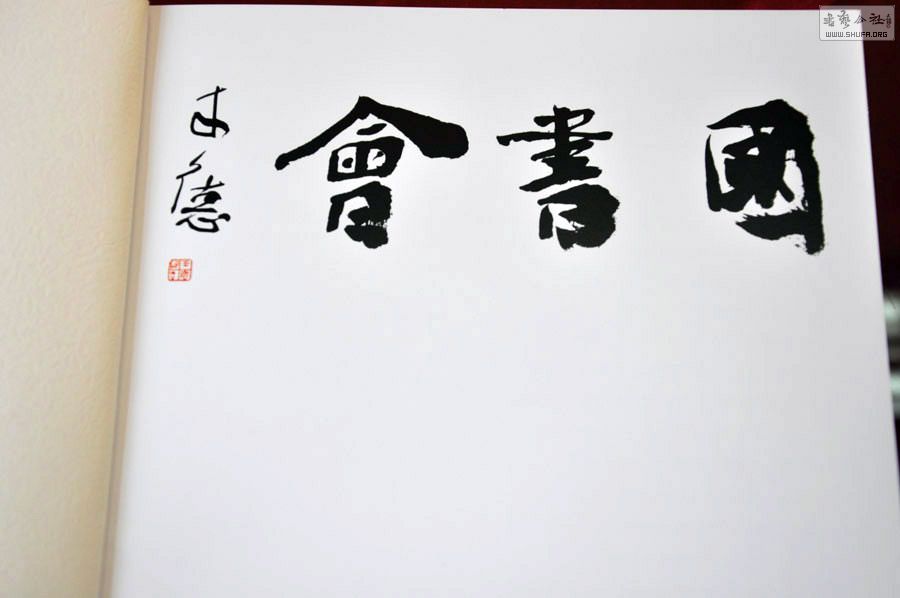 國書會
德
書藝公社
WWW.SHUFA.ORG